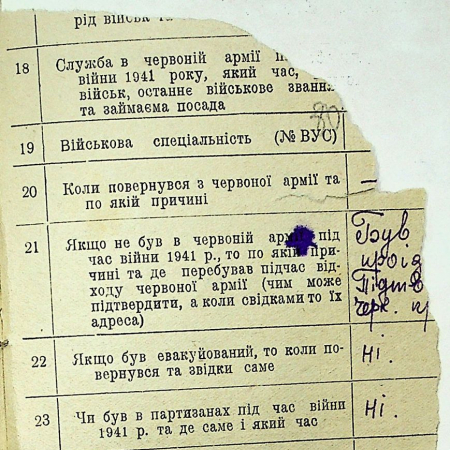 рід військ та
18 Служба в червоній армії п
війни 1941 року, який час,
військ, останнє військове званн
та займаєма посада
80
19 Військова спеціальність (№ ВУС)
20 Коли повернувся з червоної армії та
по якій причині
21 Якщо не був в червоній армії під
час війни 1941 р., то по якій при-
чині та де перебував підчас від-
ходу червоної армії (чим може
підтвердити, а коли свідками то їх
адреса)
Був
Підтв
черк.
22 Якщо був евакуйований, то коли по-
вернувся та звідки саме
Ні.
23 Чи був в партизанах під час війни
1941 р. та де саме і який час
Ні.